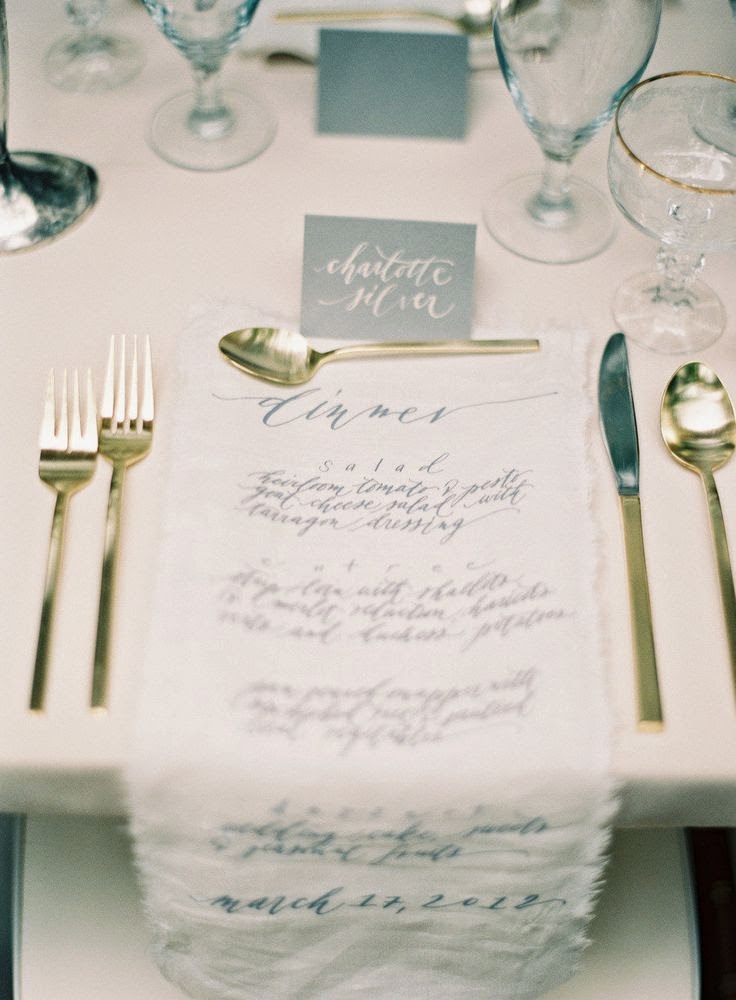 charlotte
silver
dinner
salad
heirloom tomato & pesto
goat cheese salad with
tarragon dressing
entrée
strip loin with shallots
& merlot reduction, haricots
verts and duchess potatoes
pan seared snapper with
rice &
vegetables
dessert
wedding cake, sweets
& seasonal fruits
march 17, 2012